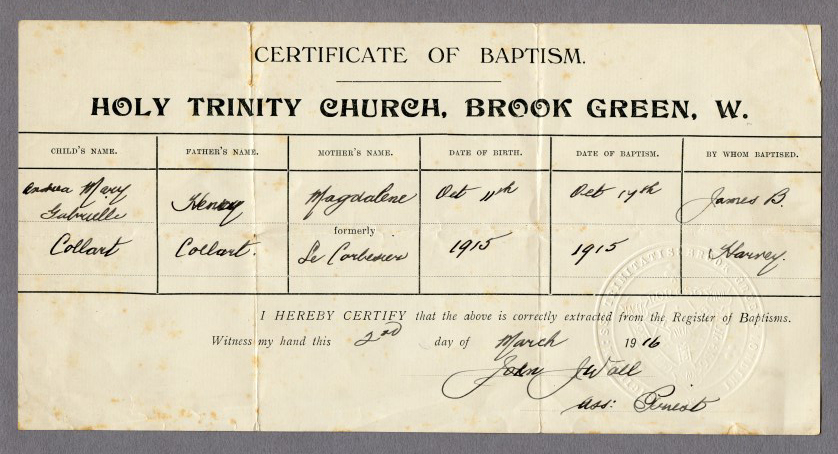 CERTIFICATE OF BAPTISM.
HOLY TRINITY CHURCH, BROOK GREEN, W.
CHILD'S NAME. FATHER'S NAME. MOTHER'S NAME. DATE OF BIRTH. DATE OF BAPTISM. BY WHOM BAPTISED.
Andrea Mary Henry Magdalene Oct 11th Oct 17th James B.
Gabrielle
formerly
Collart Collart. Le Corbesier 1915 1915 Harvey.
I HEREBY CERTIFY that the above is correctly extracted from the Register of Baptisms.
Witness my hand this 2nd day of March 1916
John J Wall
Ass: Priest